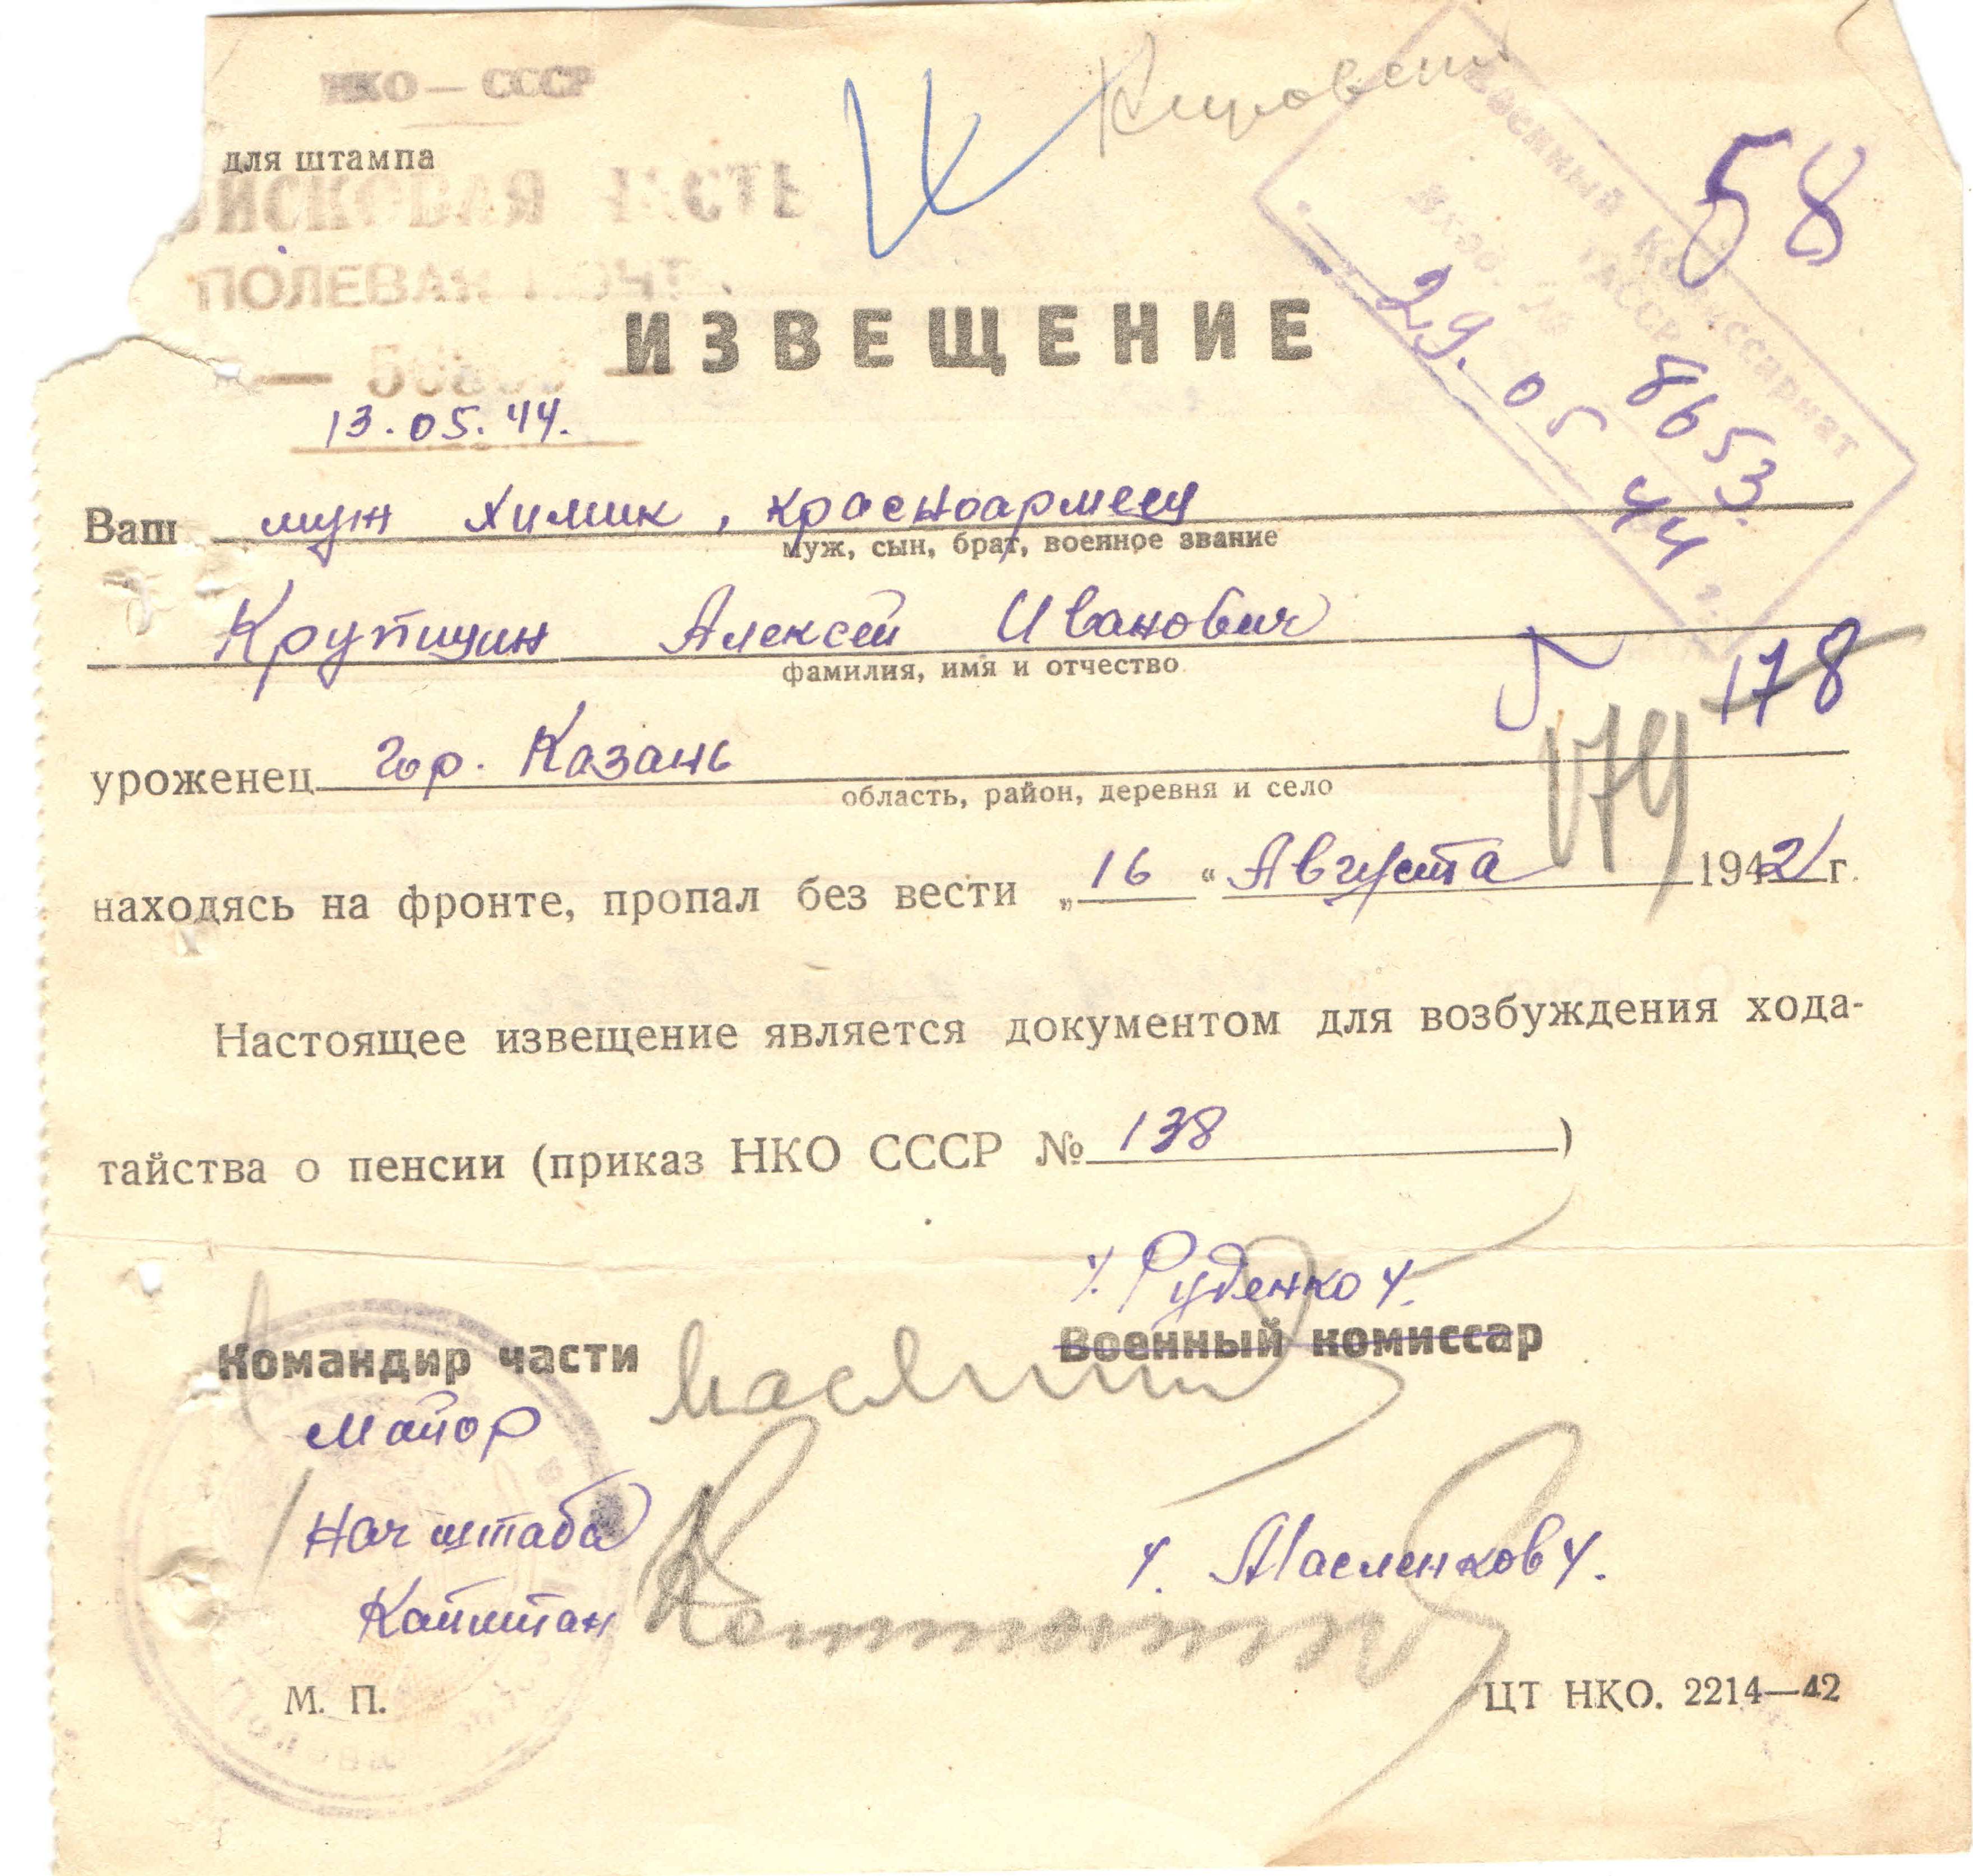 НКО — СССР
для штампа
ЙСКОВАЯ ЧАСТЬ
ПОЛЕВАЯ ПОЧТ
ИЗВЕЩЕНИЕ
58
Военный Комиссариат
ТАССР
Вход. №
8653
29. 05 44 г.
13.05.44.
Ваш муж химик, красноармеец
муж, сын, брат, военное звание
Крупицин Алексей Иванович
фамилия, имя и отчество
178
179
уроженец гор. Казань
область, район, деревня и село
находясь на фронте, пропал без вести „16“ Августа 1942 г.
Настоящее извещение является документом для возбуждения хода-
тайства о пенсии (приказ НКО СССР № 138)
/. Руденко /.
Командир части Военный комиссар
Майор
Нач штаба /. Масленков /.
Капитан
М. П.
ЦТ НКО. 2214—42